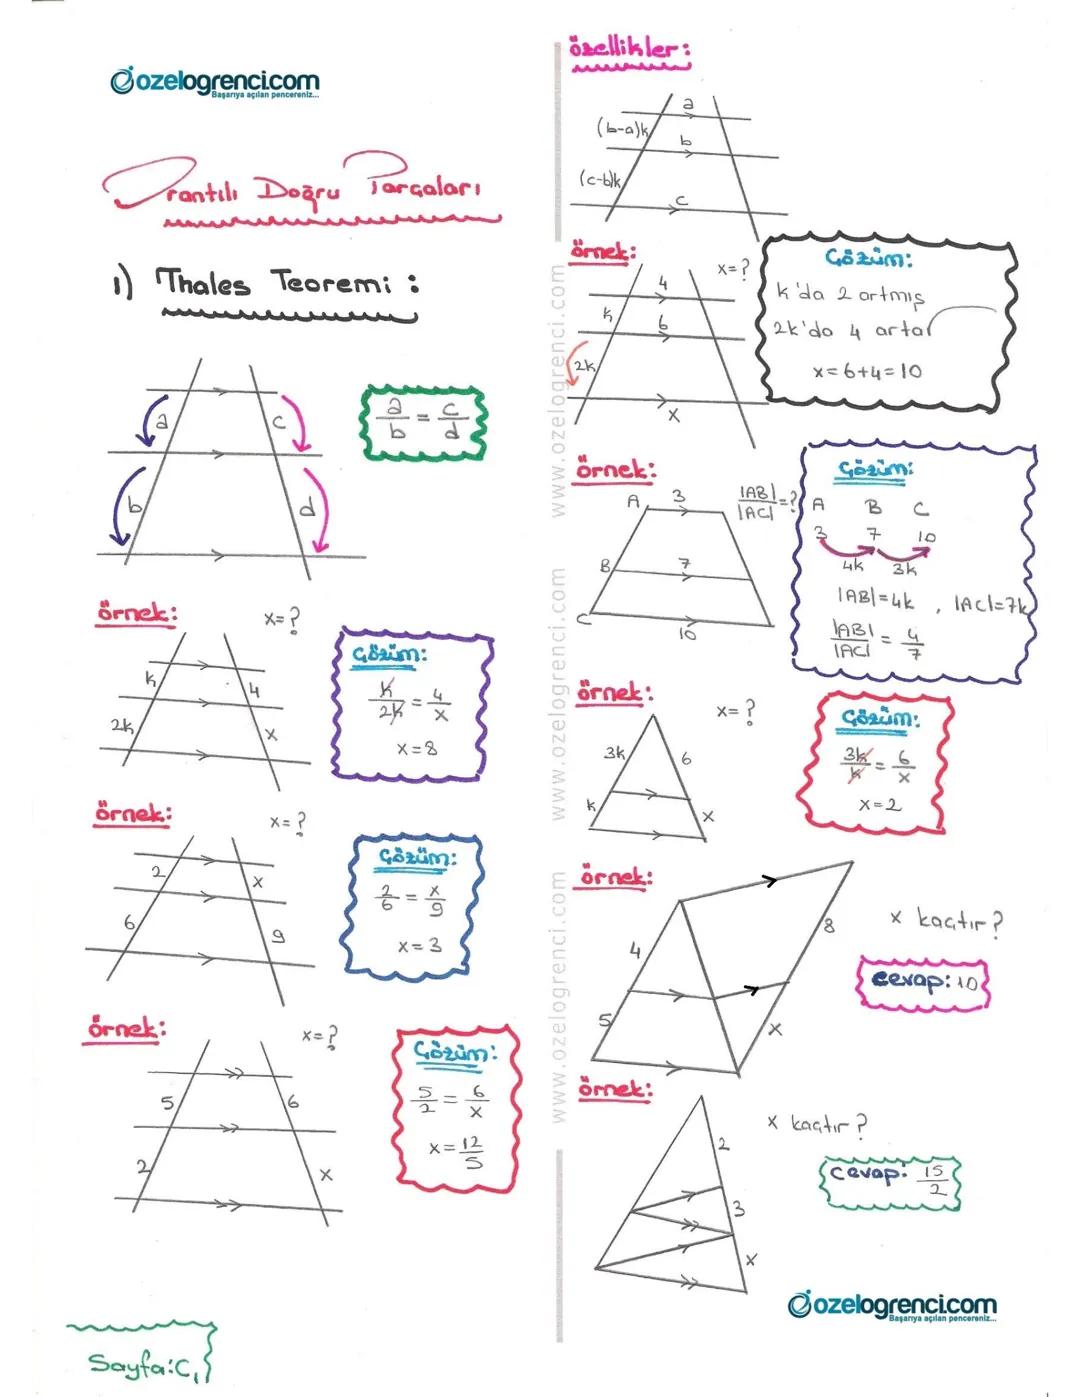 ozelogrenci.com
Başarıya açılan pencereniz...
Orantılı Doğru Parçaları
1) Thales Teoremi :
a
c
b
d
a/b = c/d
örnek:
x=?
k
4
2k
x
Çözüm:
k/2k = 4/x
x=8
örnek:
x=?
2
x
6
9
Çözüm:
2/6 = x/9
x=3
örnek:
x=?
5
6
2
x
Çözüm:
5/2 = 6/x
x=12/5
Sayfa:C₁
www.ozelogrenci.com www.ozelogrenci.com www.ozelogrenci.com
özellikler:
a
(b-a)k
b
(c-b)k
c
örnek:
x=?
4
k
6
2k
x
Çözüm:
k'da 2 artmış
2k'da 4 artar
x=6+4=10
örnek:
A 3
|AB|/|AC|=?
B 7
C
10
Çözüm:
A B C
3 7 10
4k 3k
|AB|=4k , |AC|=7k
|AB|/|AC| = 4/7
örnek:
x=?
3k
6
k
x
Çözüm:
3k/k = 6/x
x=2
örnek:
4
8
5
x
x kaçtır?
cevap: 10
örnek:
2
3
x
x kaçtır?
cevap: 15/2
ozelogrenci.com
Başarıya açılan pencereniz...